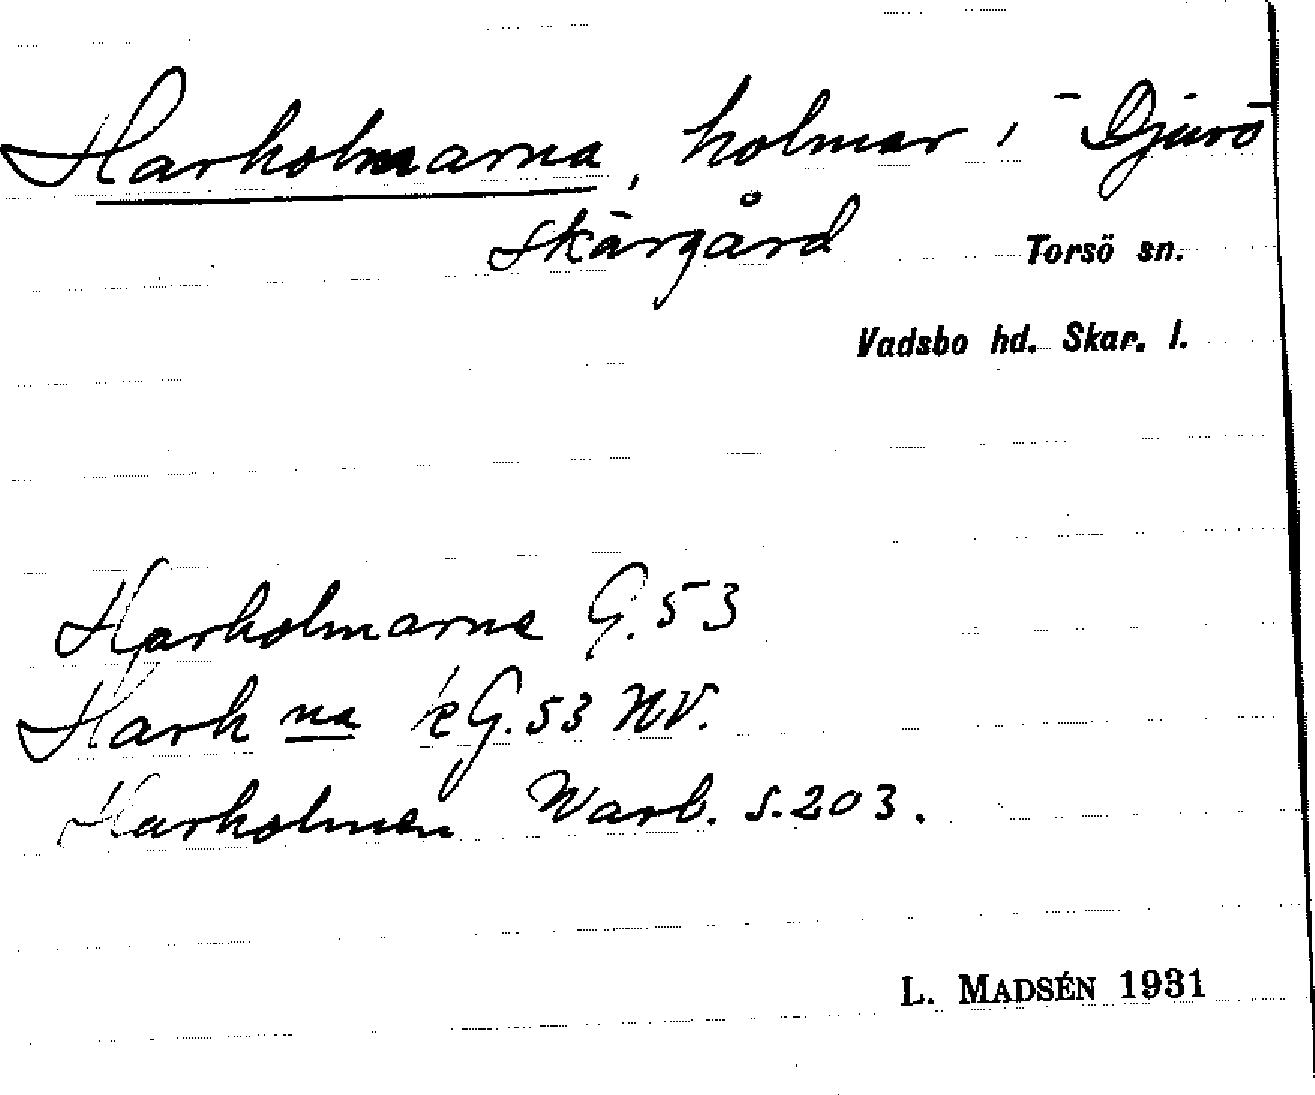 Harholmarna, holmar i Djurö
skärgård
Torsö sn.
Vadsbo hd. Skar. l.
Harholmarne G. 53
Harh na kG. 53 NV.
Harholmen Warb. s. 203.
L. MADSÉN 1931